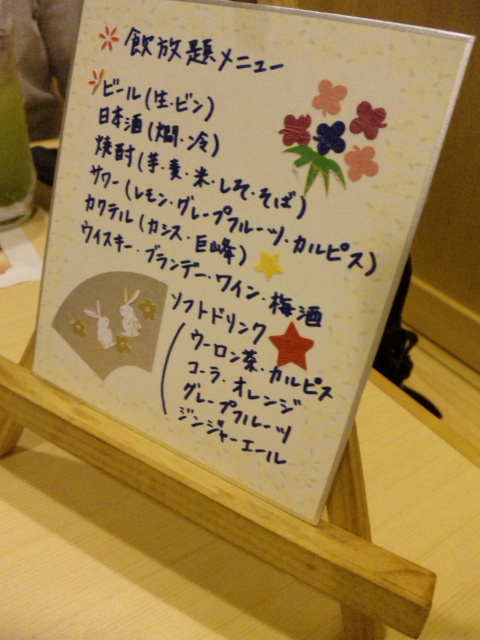 飲放題メニュー
ビール(生・ビン)
日本酒(燗・冷)
焼酎(芋・麦・米・しそ・そば)
サワー(レモン・グレープフルーツ・カルピス)
カクテル(カシス・巨峰)
ウイスキー・ブランデー・ワイン・梅酒
ソフトドリンク
ウーロン茶・カルピス
コーラ・オレンジ
グレープフルーツ
ジンジャーエール